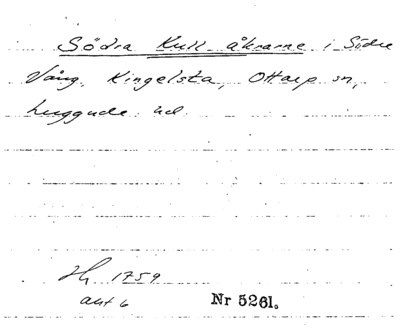 Södra Kull åkrarne i Södre
Vång, Kingelsta, Ottarp sn,
Luggude hd.
Hg 1759
akt 6
Nr 5261.